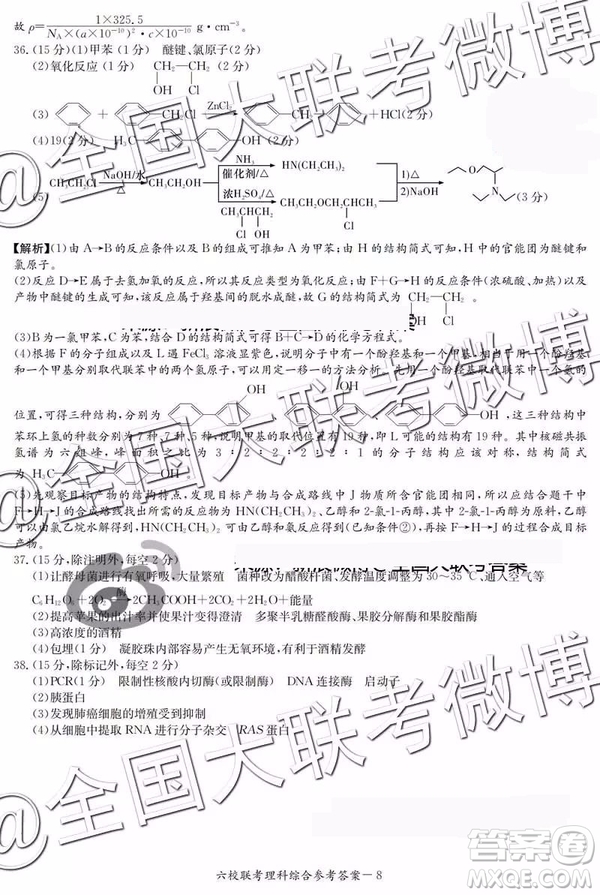 故 ρ=1×325.5/N_A×(a×10⁻¹⁰)²·c×10⁻¹⁰ g·cm⁻³。
36.(15分)(1)甲苯(1分) 醚键、氯原子(2分)
(2)氧化反应(1分) CH₂—CH₂(2分)
OH Cl
(3) + CH₂Cl ZnCl₂ CH₂ +HCl(2分)
(4)19(2分) H₃C OH(2分)
(5) CH₃CH₂Cl NaOH/水 △ CH₃CH₂OH NH₃ 催化剂/△ HN(CH₂CH₃)₂ 1)△ 2)NaOH (3分)
浓H₂SO₄/△ CH₃CHCH₂ OH Cl CH₃CH₂OCH₂CHCH₃ Cl
【解析】(1)由A→B的反应条件以及B的组成可推知A为甲苯;由H的结构简式可知,H中的官能团为醚键和
氯原子。
(2)反应D→E属于去氢加氧的反应,所以其反应类型为氧化反应;由F+G→H的反应条件(浓硫酸、加热)以及
产物中醚键的生成可知,该反应属于羟基间的脱水成醚,故G的结构简式为 CH₂—CH₂
OH Cl
(3)B为一氯甲苯,C为苯,结合D的结构简式可得B+C→D的化学方程式。
(4)根据F的分子组成以及L遇FeCl₃溶液显紫色,说明分子中含一个酚羟基和一个甲基,相当于一个酚羟基和
一个甲基分别取代联苯中的两个氢原子,可以用定一移一的方法分析。联苯中一个酚羟基取代一个苯环上的氢的
位置,可得三种结构,分别为 OH 、 OH 、 OH ,这三种结构中
苯环上氢的种数分别为7种、7种、5种,说明甲基的取代位置有19种,即L可能的结构有19种。其中核磁共振
氢谱为六组峰,峰面积之比为3∶2∶2∶2∶2∶1的结构简式
为 H₃C OH 。
(5)先观察目标产物的结构特点,发现目标产物与合成路线中J物质所含的官能团相同,所以应结合题干中
F→H→J的合成路线找出所需的反应物为HN(CH₂CH₃)₂、乙醇和2-氯-1-丙醇,其中2-氯-1-丙醇为原料,乙
醇可以由氯乙烷水解得到,HN(CH₂CH₃)₂可由乙醇和氨气得到(已知条件②),再按F→H→J的过程合成目标
产物。
37.(15分,除注明外,每空2分)
(1)让酵母菌进行有氧呼吸,大量繁殖 菌种改为醋酸杆菌、发酵温度调整为30~35℃、通入空气等
C₆H₁₂O₆+2O₂ 酶 2CH₃COOH+2CO₂+2H₂O+能量
(2)提高苹果的出汁率并使果汁变得澄清 多聚半乳糖醛酸酶、果胶分解酶和果胶酯酶
(3)高浓度的酒精
(4)包埋(1分) 凝胶珠内部容易产生无氧环境,有利于酒精发酵
38.(15分,除标记外,每空2分)
(1)PCR(1分) 限制性核酸内切酶(或限制酶) DNA连接酶 启动子
(2)胰蛋白
(3)发现肺癌细胞的增殖受到抑制
(4)从细胞中提取RNA进行分子杂交 RAS蛋白
六校联考理科综合参考答案－8
@全国大联考微博
@全国大联考微博